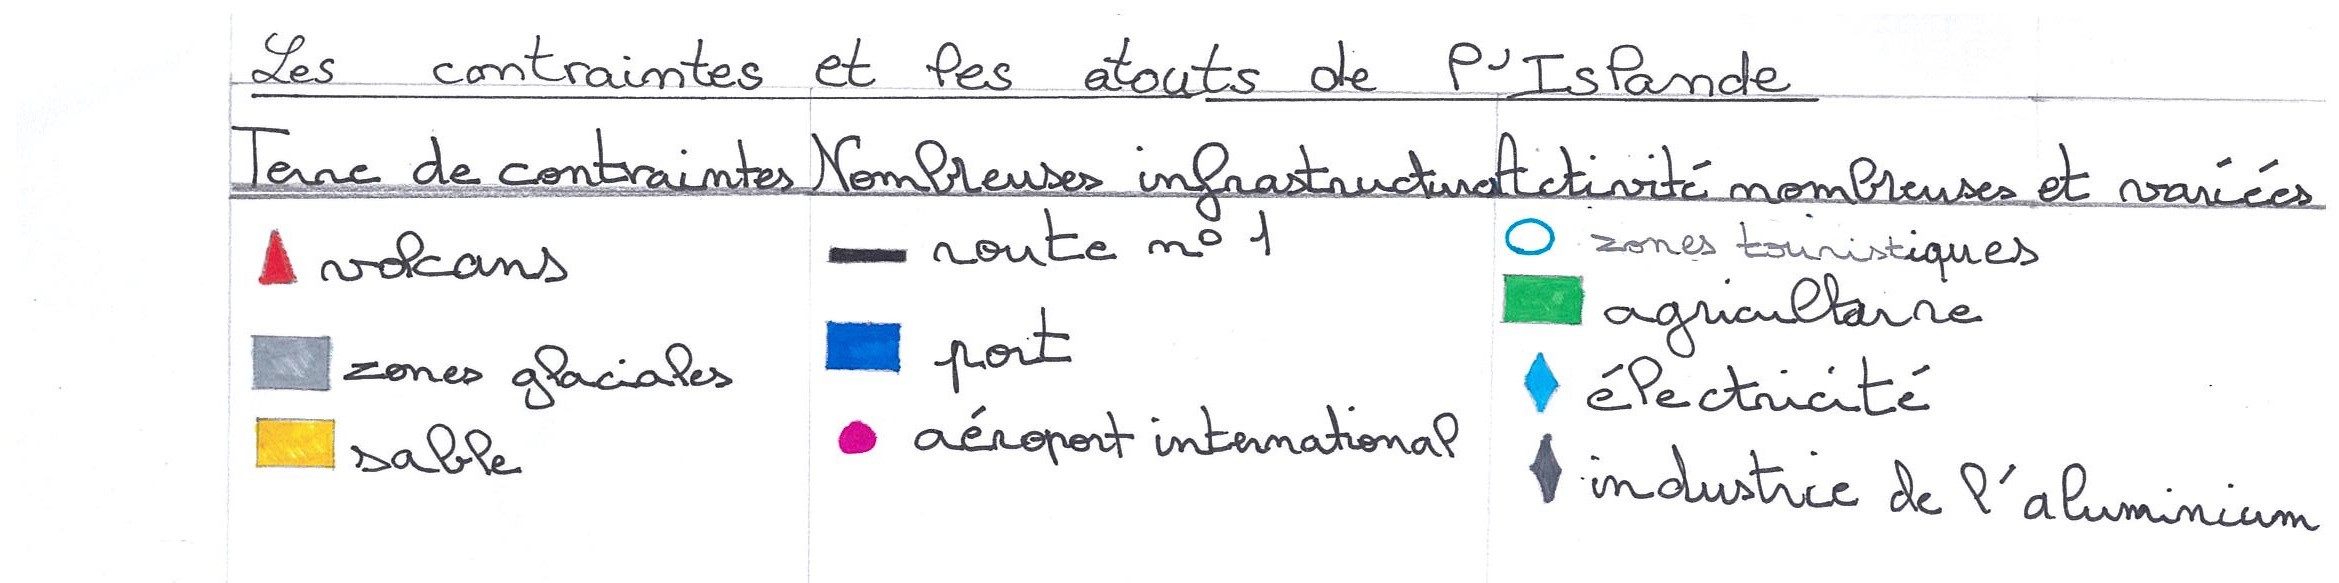 Les contraintes et les atouts de l'Islande
Terre de contraintes
volcans
zones glaciales
sable
Nombreuses infrastructures
route n° 1
port
aéroport international
Activité nombreuses et variées
zones touristiques
agriculture
électricité
industrie de l'aluminium